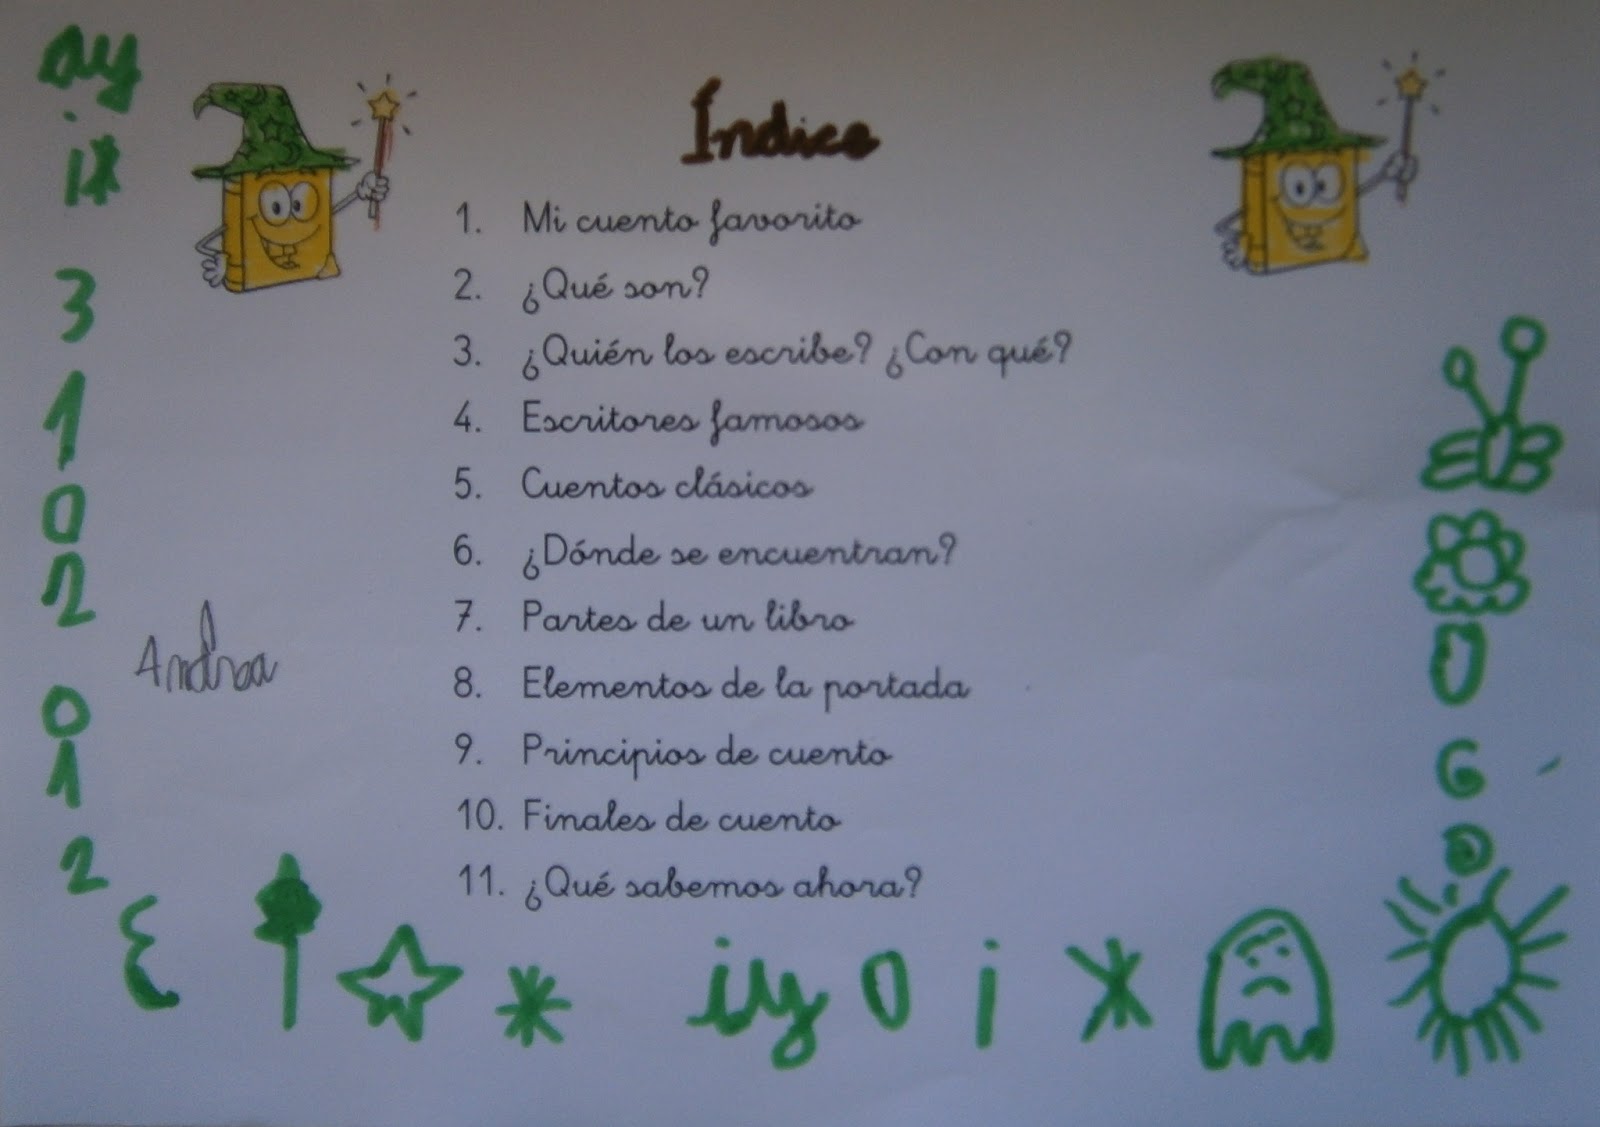 Índice
1. Mi cuento favorito
2. ¿Qué son?
3. ¿Quién los escribe? ¿Con qué?
4. Escritores famosos
5. Cuentos clásicos
6. ¿Dónde se encuentran?
7. Partes de un libro
8. Elementos de la portada
9. Principios de cuento
10. Finales de cuento
11. ¿Qué sabemos ahora?
Andrea
ay
i
3
1
0
2
0
1
2
iy 0 i
6